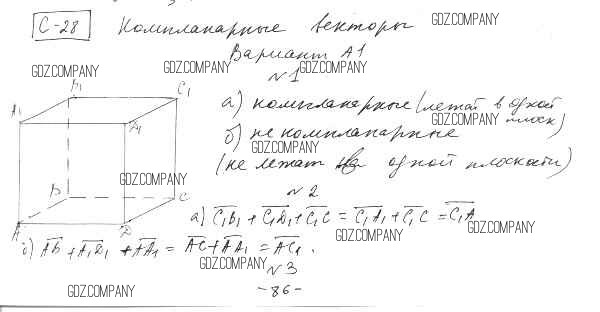 С-28 Компланарные векторы GDZ.COMPANY
Вариант А1
GDZ.COMPANY GDZ.COMPANY GDZ.COMPANY
№1
B1 C1
A1 D1
а) компланарные (лежат в одной
плоск)
GDZ.COMPANY
б) не компланарные
(не лежат в одной плоскости)
GDZ.COMPANY
B C
A D
№2
а) C1B1 + C1D1 + C1C = C1A1 + C1C = C1A
GDZ.COMPANY
б) AB + A1D1 + AA1 = AC + AA1 = AC1.
GDZ.COMPANY
№3
GDZ.COMPANY
-86-